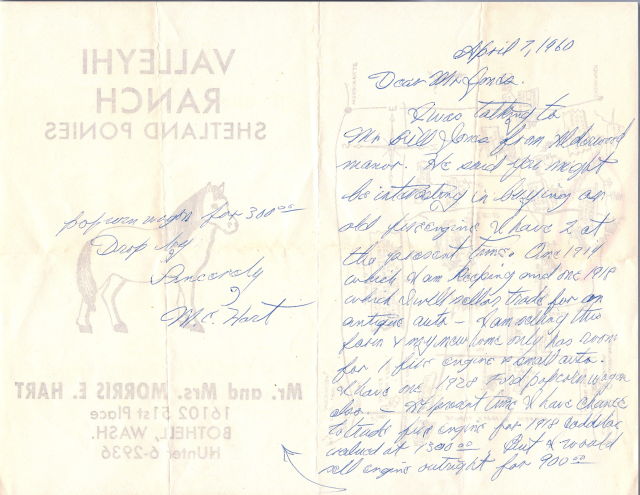 April 7, 1960
Dear Mr. Jones.
I was talking to
Mr Bill Jones from Alderwood
manor. He said you might
be interesting in buying an
old fire engine I have 2 at
the present time. One 1914
which I am keeping and one 1918
which I will sell or trade for an
antique auto – I am selling this
farm & my new home only has room
for 1 fire engine & small auto.
I have one 1928 Ford popcorn wagon
also. – At present time I have chance
to trade fire engine for 1918 Cadillac
valued at 1300.00 But I would
sell engine outright for 900.00
popcorn wagon for 300.00
Drop
Sincerely
M.E. Hart
VALLEYHI
RANCH
SHETLAND PONIES
Mr. and Mrs. MORRIS E. HART
16102 51st Place
BOTHELL, WASH.
HUnter 6-2936